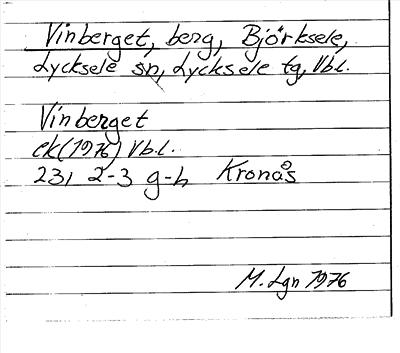 Vinberget, berg, Björksele,
Lycksele sn, Lycksele tg, Vbl.
Vinberget
ek(1976) Vb.l.
23, 2-3 g-h Kronås
M. Lgn 1976